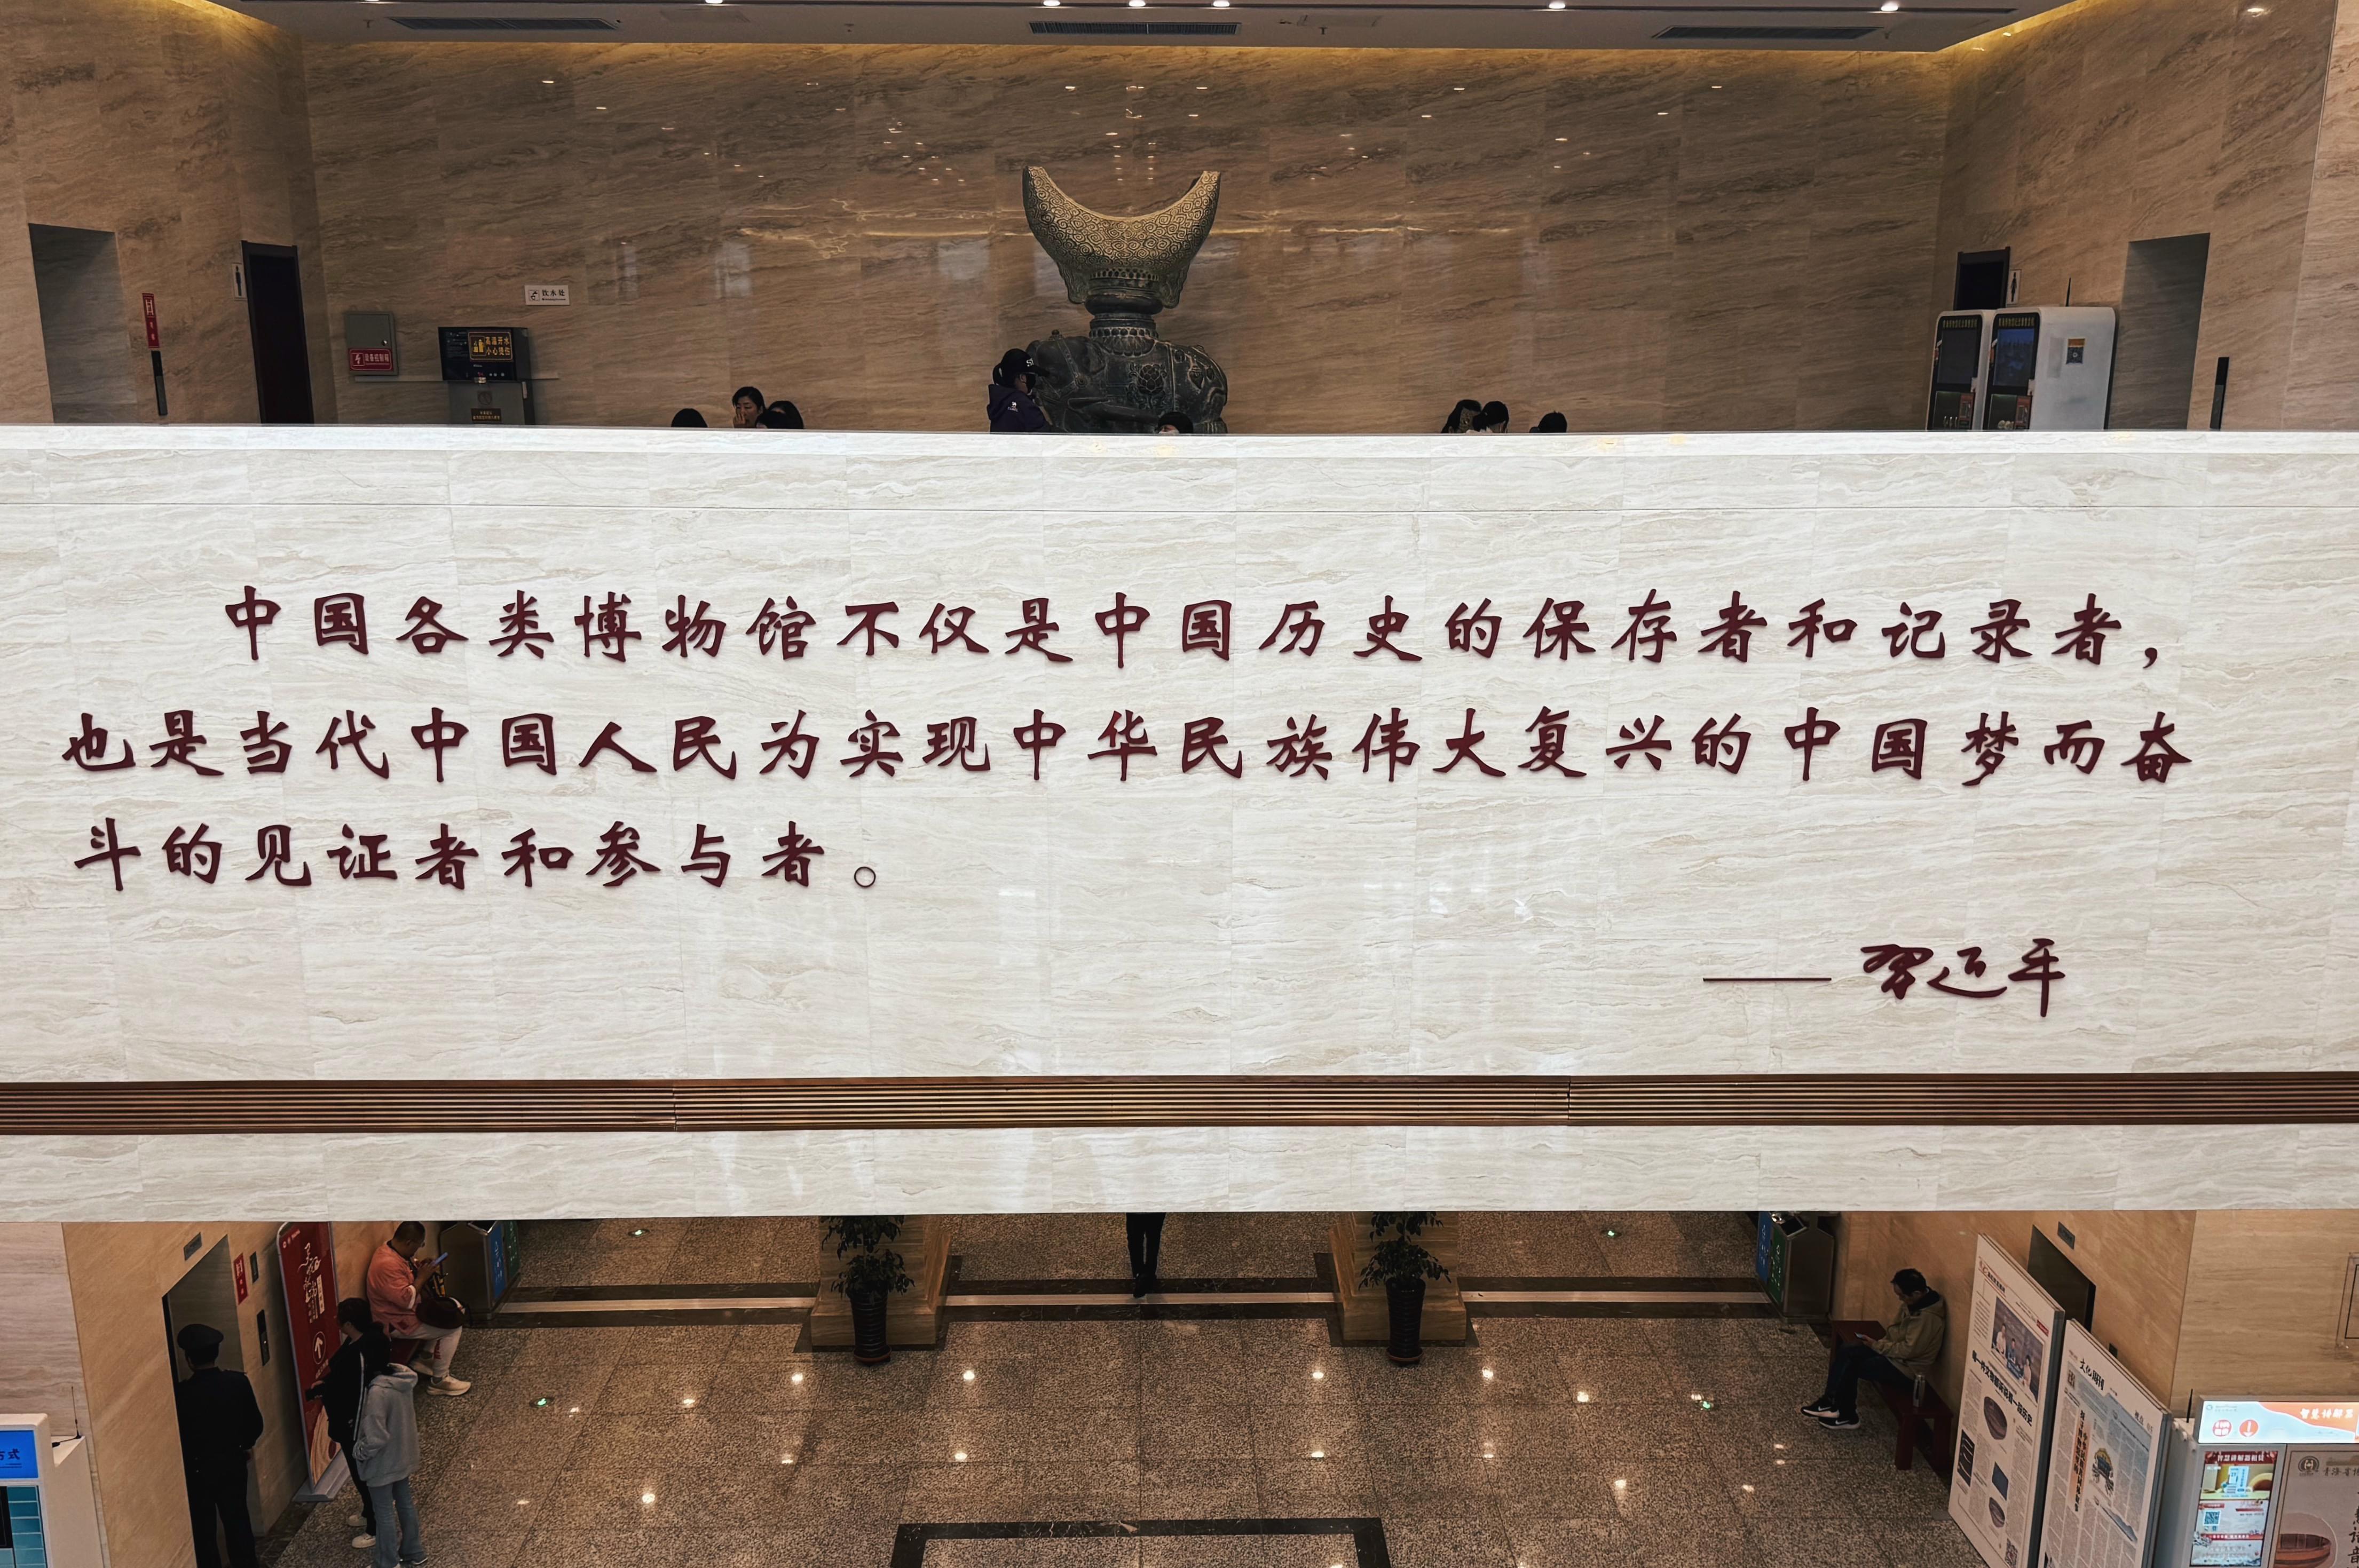 饮水处
高温开水
小心烫伤
中国各类博物馆不仅是中国历史的保存者和记录者，
也是当代中国人民为实现中华民族伟大复兴的中国梦而奋
斗的见证者和参与者。
—— 习近平
文化周刊
方式